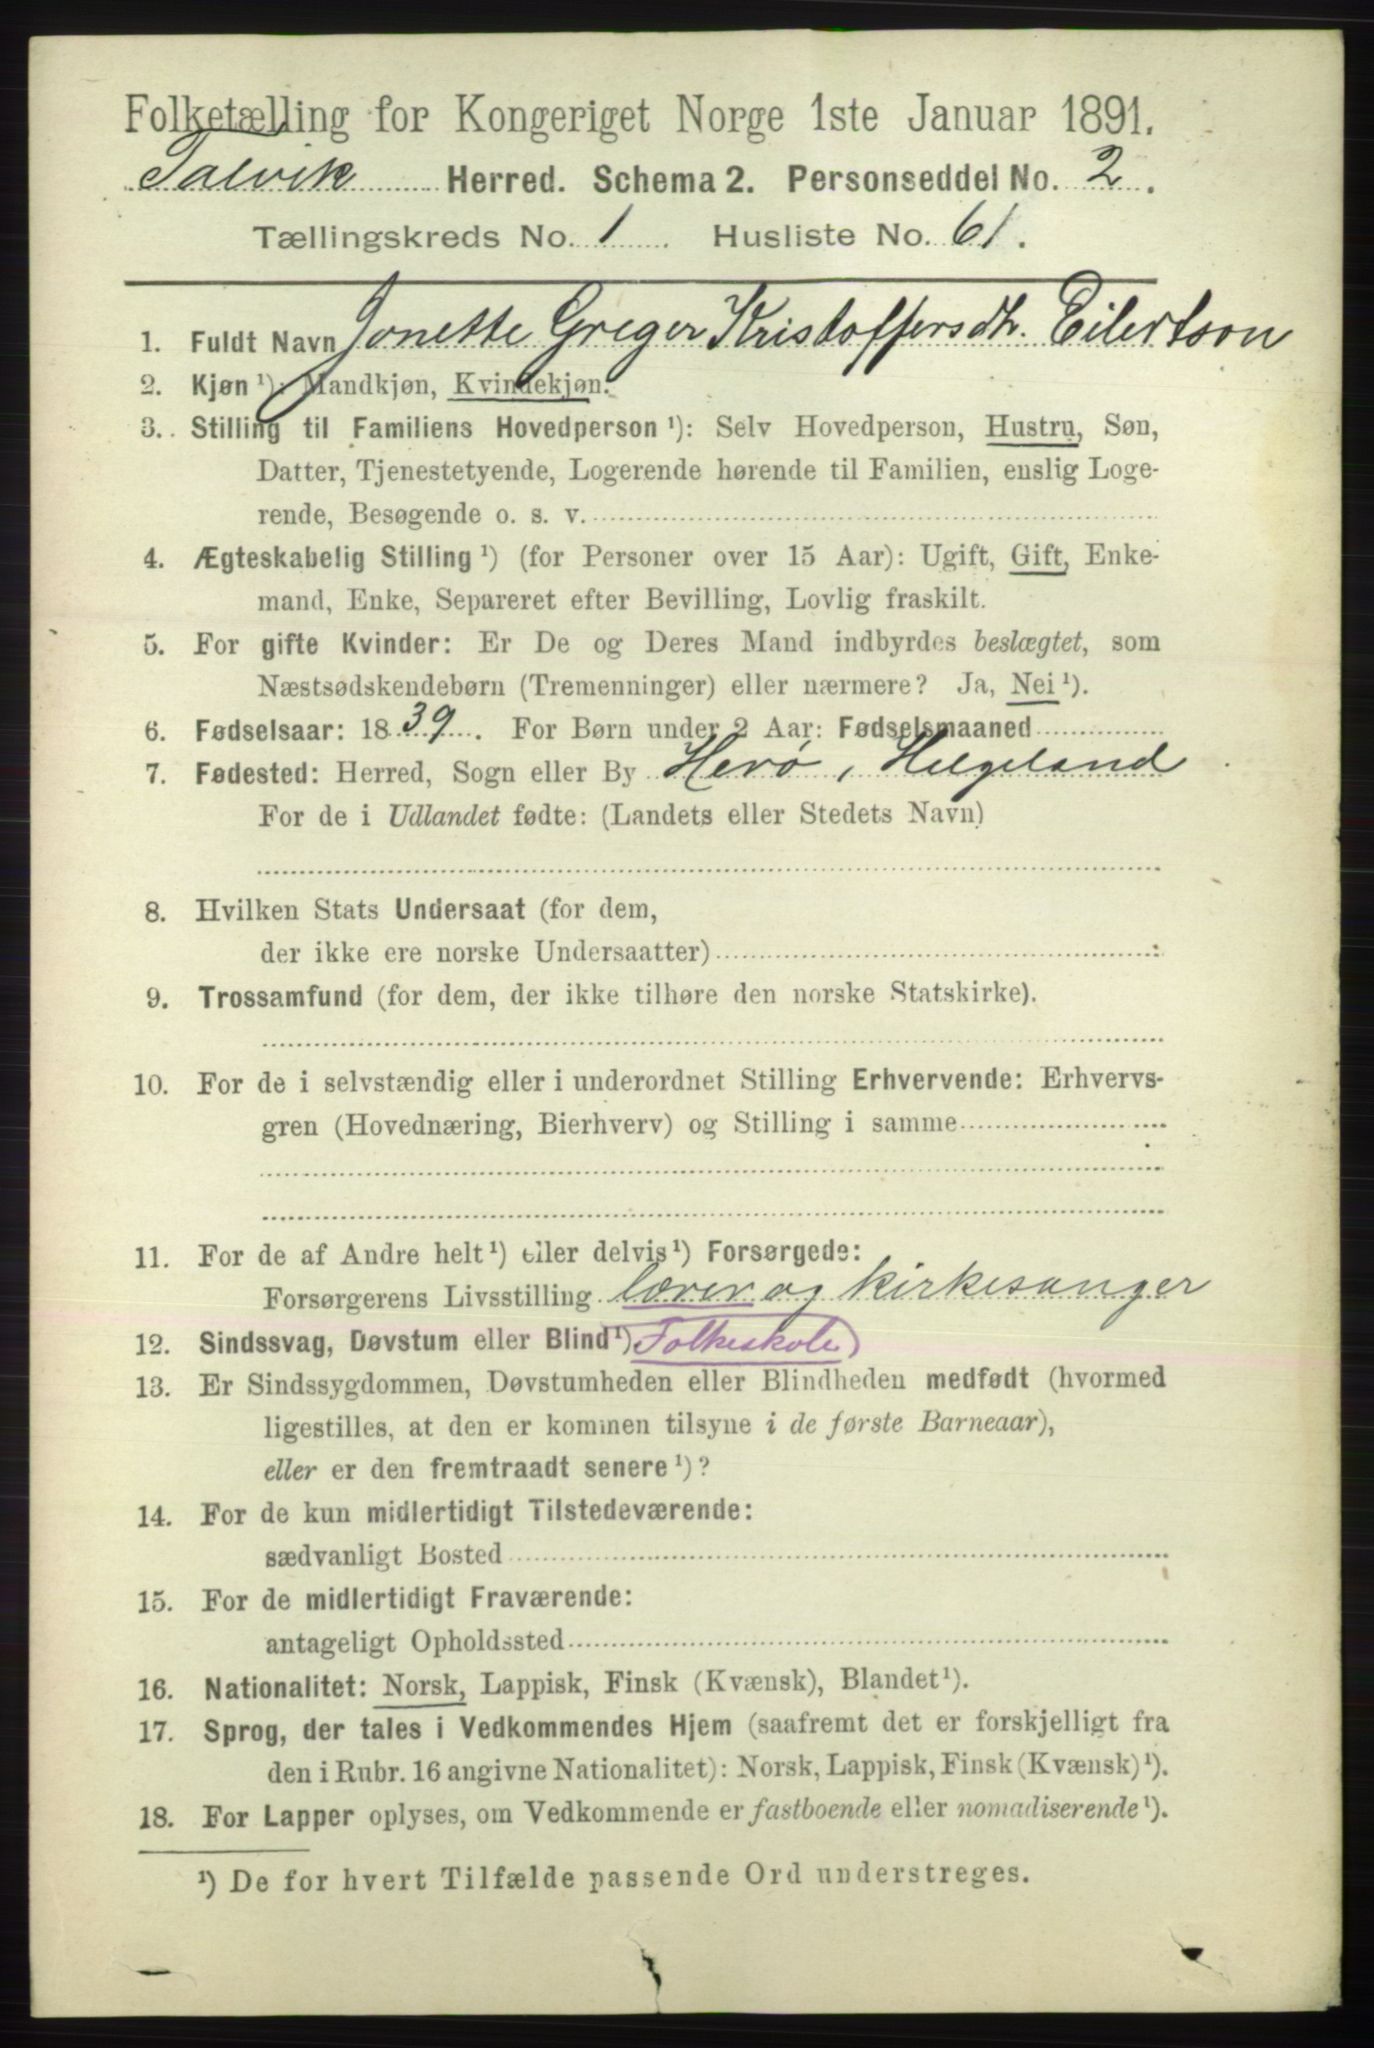 Folketælling for Kongeriget Norge 1ste Januar 1891.
Talvik Herred. Schema 2. Personseddel No. 2.
Tællingskreds No. 1 Husliste No. 61.
1. Fuldt Navn Jonette Greger Kristoffersdtr. Eilertson
2. Kjøn ¹): Mandkjøn, Kvindekjøn.
3. Stilling til Familiens Hovedperson ¹): Selv Hovedperson, Hustru, Søn,
Datter, Tjenestetyende, Logerende hørende til Familien, enslig Loge-
rende, Besøgende o. s. v.
4. Ægteskabelig Stilling ¹) (for Personer over 15 Aar): Ugift, Gift, Enke-
mand, Enke, Separeret efter Bevilling, Lovlig fraskilt.
5. For gifte Kvinder: Er De og Deres Mand indbyrdes beslægtet, som
Næstsødskendebørn (Tremenninger) eller nærmere? Ja, Nei ¹).
6. Fødselsaar: 1839. For Børn under 2 Aar: Fødselsmaaned
7. Fødested: Herred, Sogn eller By Herø, Helgeland
For de i Udlandet fødte: (Landets eller Stedets Navn)
8. Hvilken Stats Undersaat (for dem,
der ikke ere norske Undersaatter)
9. Trossamfund (for dem, der ikke tilhøre den norske Statskirke).
10. For de i selvstændig eller i underordnet Stilling Erhvervende: Erhvervs-
gren (Hovednæring, Bierhverv) og Stilling i samme
11. For de af Andre helt ¹) eller delvis ¹) Forsørgede:
Forsørgerens Livsstilling lærer og kirkesanger
12. Sindssvag, Døvstum eller Blind ¹) Folkeskole)
13. Er Sindssygdommen, Døvstumheden eller Blindheden medfødt (hvormed
ligestilles, at den er kommen tilsyne i de første Barneaar),
eller er den fremtraadt senere ¹)?
14. For de kun midlertidigt Tilstedeværende:
sædvanligt Bosted
15. For de midlertidigt Fraværende:
antageligt Opholdssted
16. Nationalitet: Norsk, Lappisk, Finsk (Kvænsk), Blandet ¹).
17. Sprog, der tales i Vedkommendes Hjem (saafremt det er forskjelligt fra
den i Rubr. 16 angivne Nationalitet): Norsk, Lappisk, Finsk (Kvænsk) ¹).
18. For Lapper oplyses, om Vedkommende er fastboende eller nomadiserende ¹).
¹) De for hvert Tilfælde passende Ord understreges.